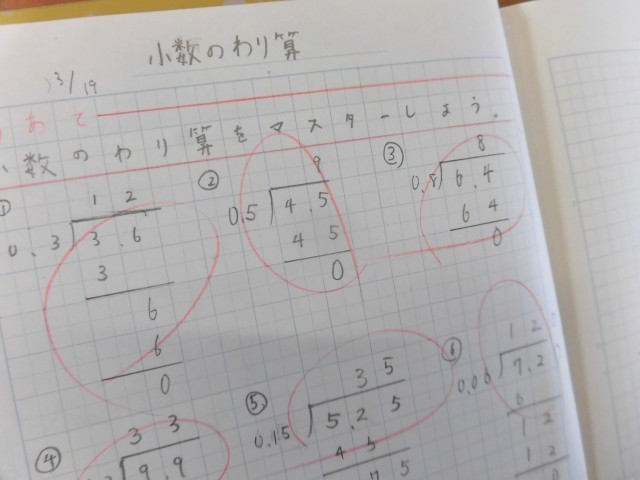 小数のわり算
3/19
めあて
小数のわり算をマスターしよう。
①
12
0.3 3.6
3
6
6
0
②
9
0.5 4.5
4 5
0
③
8
0.8 6.4
6 4
0
④
33
9.9
⑤
35
0.15 5.25
4 5
7 5
⑥
12
0.06 7.2
6
1 2
1 2
0